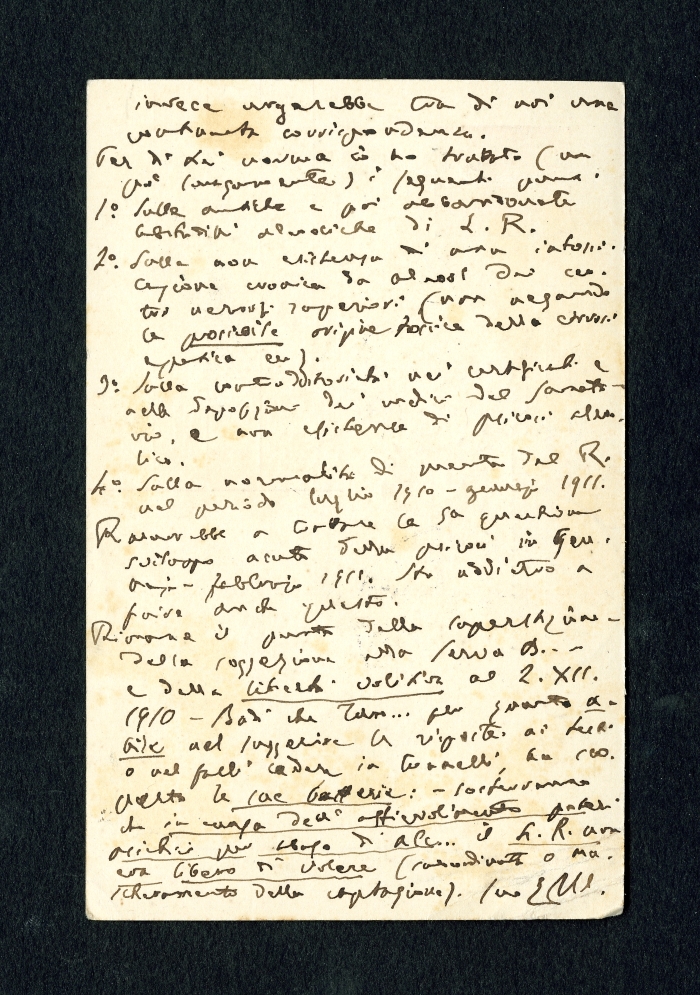 invece urgerebbe tra di noi una
corrispondenza.
Per di Lei norma io ho trattato (un
po' lungamente) i seguenti punti:
1º Sulle antiche e poi abbandonate
abitudini alcooliche di L. R.
2º Sulla non esistenza di una intossi-
cazione cronica da alcool dei cen-
tri nervosi superiori (non negando
la possibile origine tossica della cirrosi
epatica ecc).
3º Sulla contradditorietà nei certificati e
nella deposizione dei medici del Sanato-
rio, e non esistenza di psicosi alcoo-
lica.
4º Sulla normalità di mente del R.
nel periodo luglio 1910 - gennajo 1911.
Rimarrebbe a trattare la 5a questione
sviluppo acuto della psicosi in Gen-
najo - febbrajo 1911. Sto addietro a
finire anche questo.
Rimane il punto della superstizione -
della soggezione alla serva B...
e della libertà volitiva al 2. XII.
1910 - Badi che Tam... per quanto a-
bile nel suggerire le risposte ai testi
o nel farli cadere in tranelli, ha sco-
perto le sue batterie: - sosterranno
che in causa dell' affievolimento
psichico per abuso di alc... il L. R. non
era libero di volere (
della captazione). suo